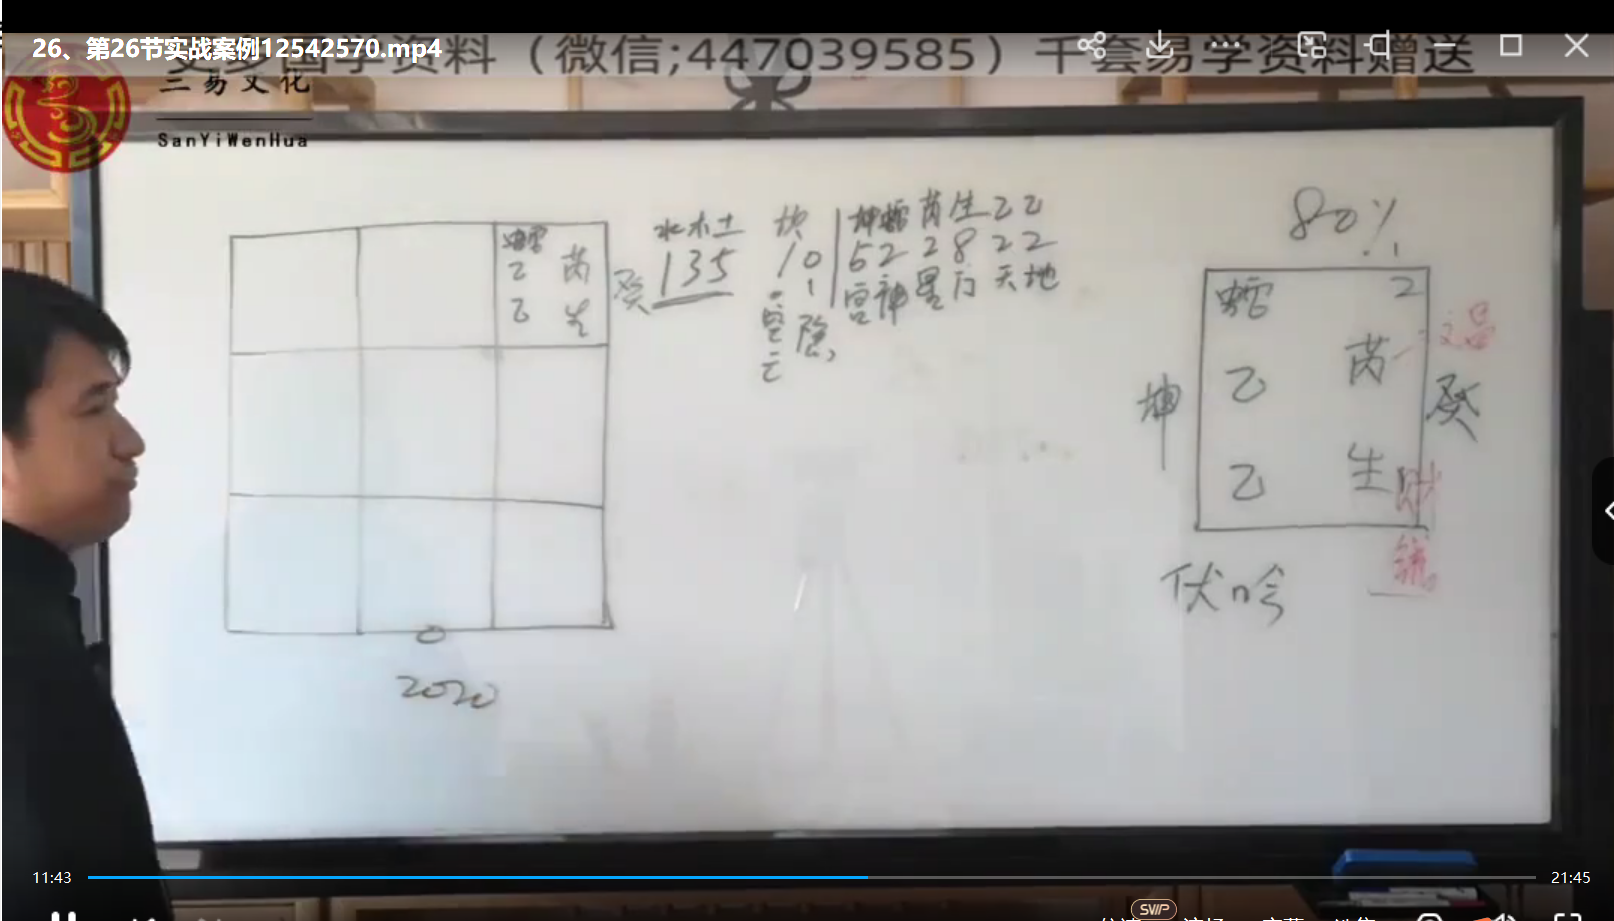 26、第26节实战案例12542570.mp4
资料（微信;447039585）千套易学资料赠送
三易文化
SanYiWenHua
乙 芮
乙 生
癸
水木土
135
坎
10
空亡
坤 芮生乙乙
62 2822
宫神星门天地
80%
2
乙 芮
乙 生
坤
癸
文昌
财
伏吟
2020
11:43
21:45
SVIP